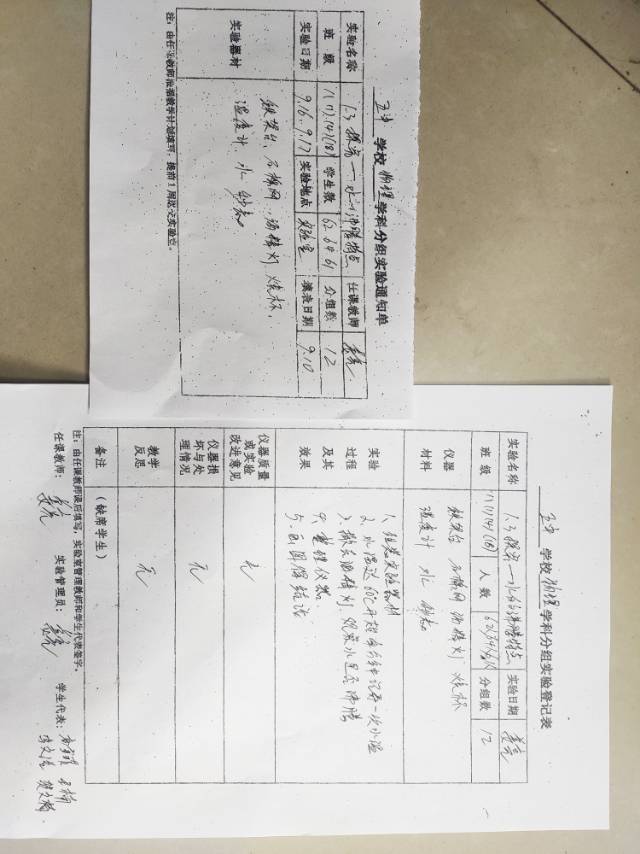 五中 学校 物理 学科分组实验通知单
实验名称 1.3 探究——水的沸腾特点 任课教师
班级 学生数 62 64 61 分组数 12
实验日期 9.16. 9.17 实验地点 实验室 填表日期 9.10
实验器材 铁架台、石棉网、酒精灯、烧杯、
温度计、水、钟表
注:由任课教师依据教学计划填写,提前1周送交实验室。
五中 学校 物理 学科分组实验登记表
实验名称 1.3 探究——水的沸腾特点 实验日期
班级 人数 分组数 12
仪器材料 铁架台 石棉网 酒精灯 烧杯
温度计 水 钟表
实验过程及其效果 1、组装实验器材
2、水温达 开始每分钟记录一次水温
3、撤去酒精灯,观察水是否沸腾
4、整理仪器
5、画图得结论
仪器质量或实验改进意见 无
仪器损坏与处理情况 无
教学反思 无
备注 (缺席学生)
注:由任课教师课后填写,实验室管理教师和学生代表签字。
任课教师: 实验管理员: 学生代表: